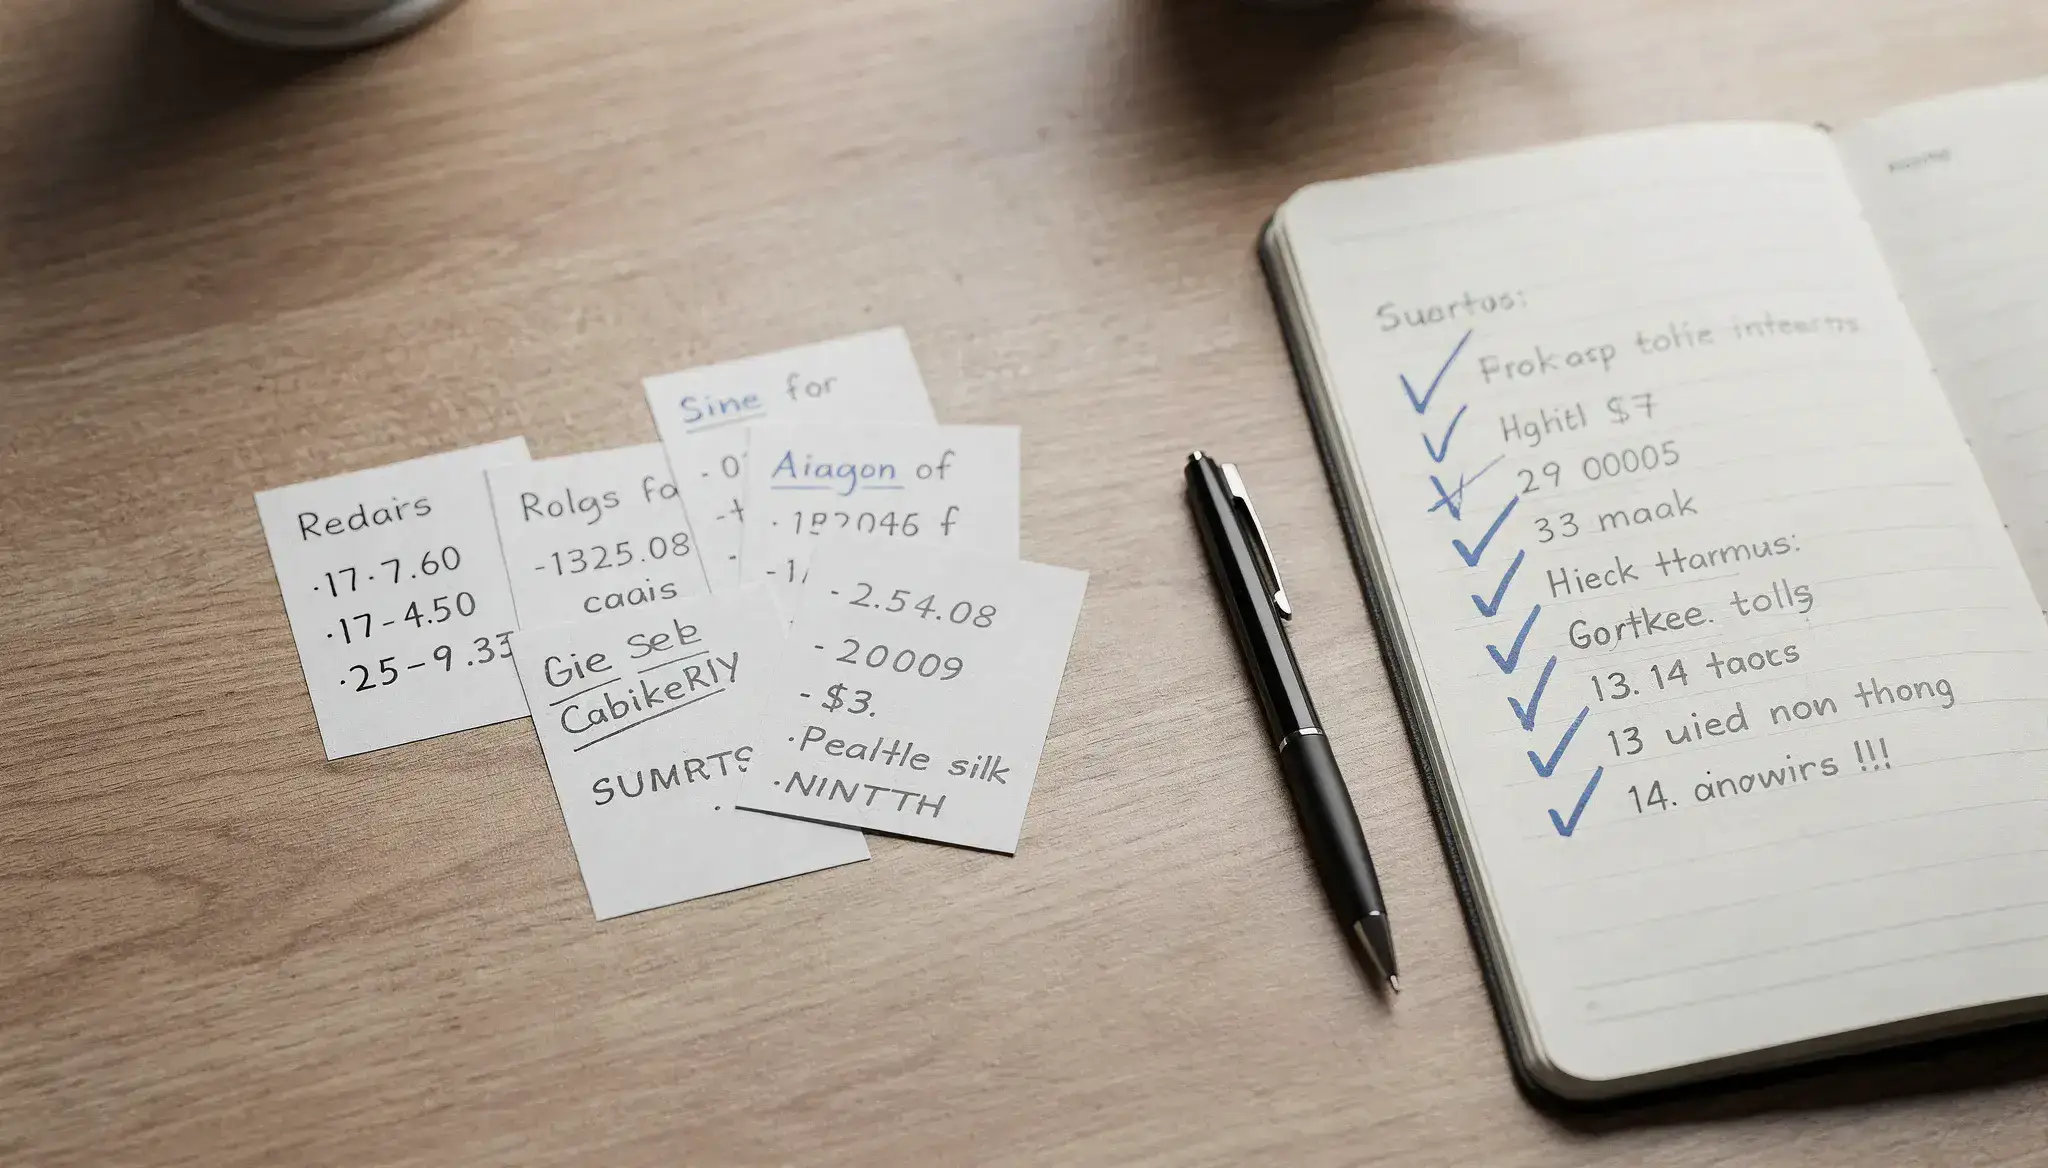 Redairs
·17-7.60
·17-4.50
·25-9.33
Rolgs fo
-1325.08
caais
Sine for
Aiagon of
-2.54.08
-20009
-$3.
·Pealtle silk
·NINTTH
Gie Seb
CabikeRlY
SUMRTS
Suartas:
Prokasp tolie
Hghitl $7
29 00005
33 maak
Hieck Harmus:
Gortkee. tolls
13. 14 taocs
13 uied non thong
14. anowirs !!!